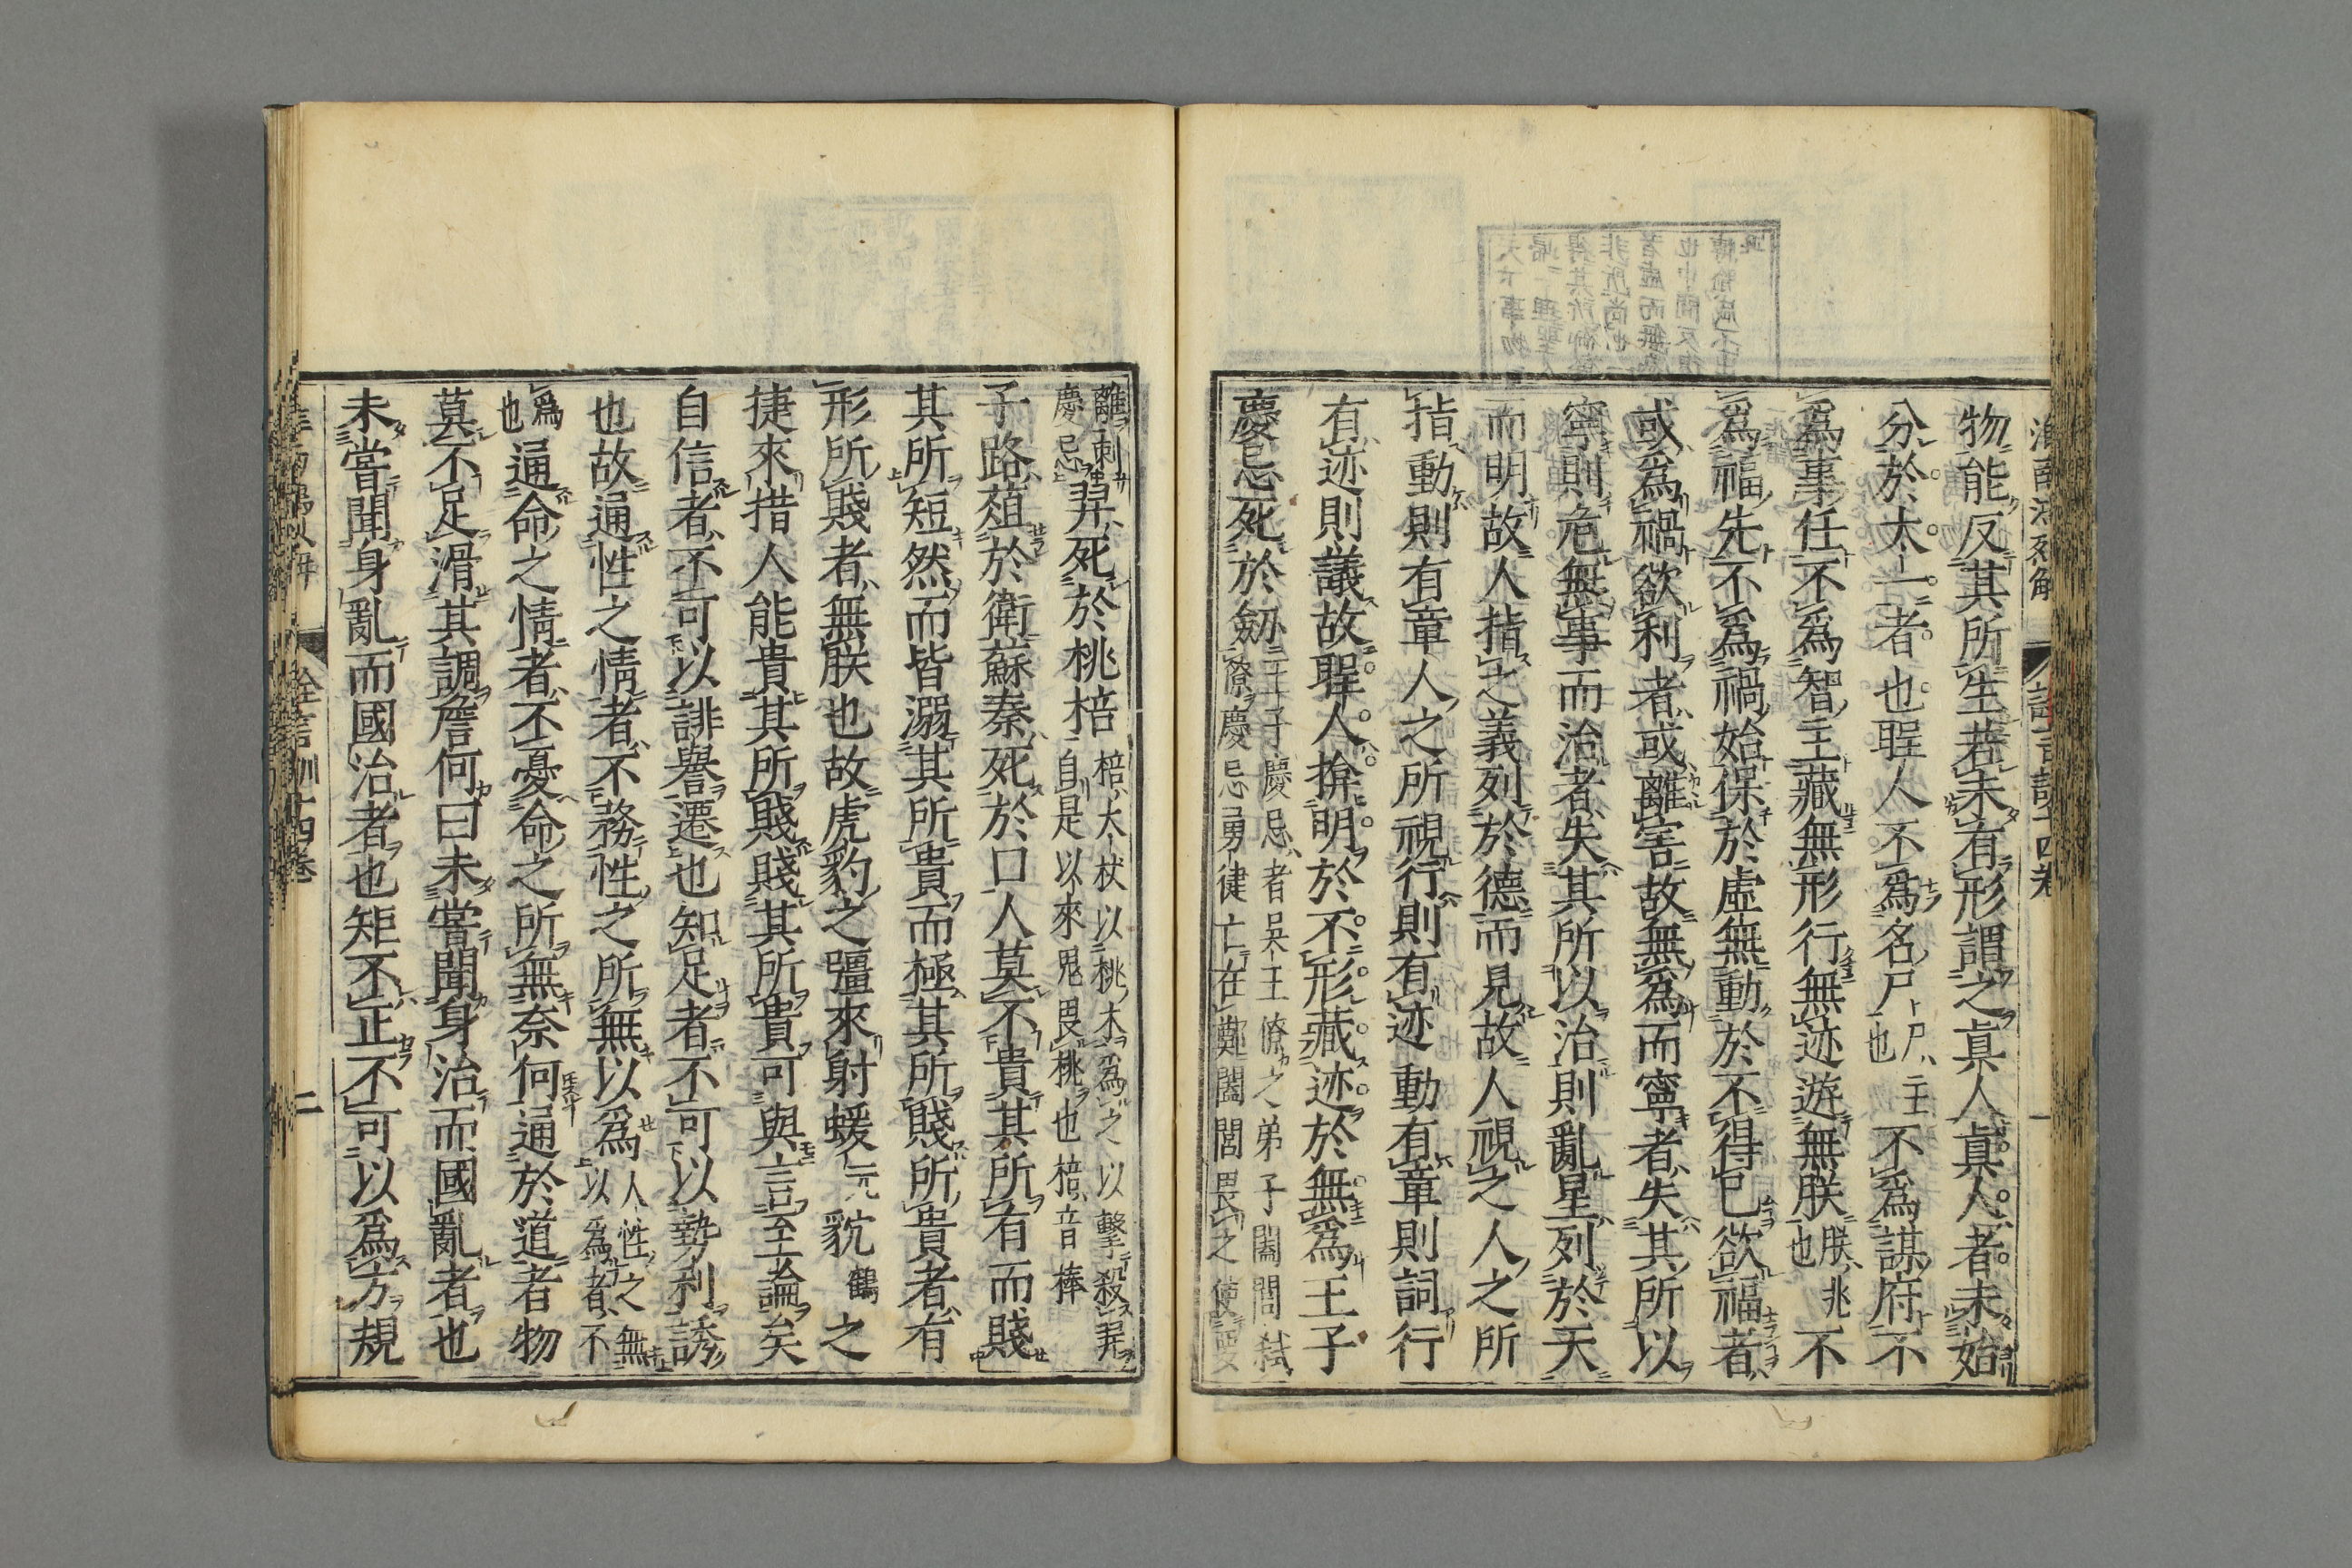 物能反其所生若未有形謂之真人真人者未始
分於太一者也聖人不爲名尸尸主也不爲謀府不
爲事任不爲智主藏無形行無迹遊無朕朕兆也不
爲福先不爲禍始保於虛無動於不得已欲福者
或爲禍欲利者或離害故無爲而寧者失其所以
寧則危無事而治者失其所以治則亂星列於天
而明故人指之義列於德而見故人視之人之所
指動則有章人之所視行則有迹動有章則詞行
有迹則議故聖人揜明於不形藏迹於無爲王子
慶忌死於劒王子慶忌者吳王僚之弟子闔閭弑
僚慶忌勇健亡在鄭闔閭畏之使要
離刺慶忌羿死於桃棓棓大杖以桃木爲之以擊殺羿
自是以來鬼畏桃也棓音棒
子路葅於衛蘇秦死於口人莫不貴其所有而賤
其所短然而皆溺其所貴而極其所賤所貴者有
形所賤者無朕也故虎豹之彊來射蝯元貁鶴之
捷來措人能貴其所賤賤其所貴可與言至論矣
自信者不可以誹譽遷也知足者不可以勢利誘
也故通性之情者不務性之所無以爲人性之無以爲者不
爲也通命之情者不憂命之所無奈何通於道者物
莫不足滑其調詹何曰未嘗聞身治而國亂者也
未嘗聞身亂而國治者也矩不正不可以爲方規
詮言訓十四卷
二